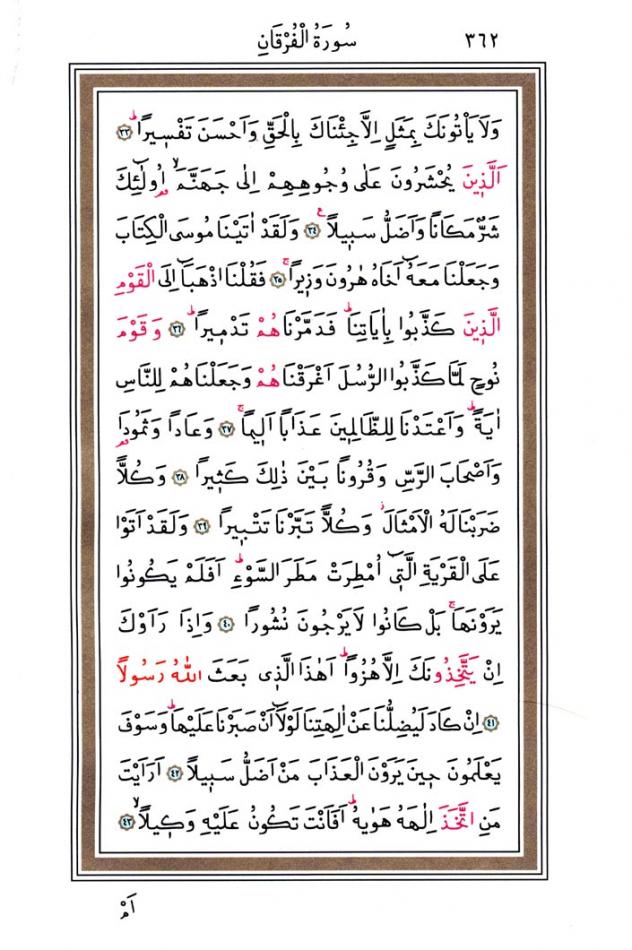 سُورَةُ الْفُرْقَانِ ٣٦٢
وَلَا يَأْتُونَكَ بِمَثَلٍ اِلَّا جِئْنَاكَ بِالْحَقِّ وَاَحْسَنَ تَفْسٖيراًؕ ﴿٣٣﴾
اَلَّذٖينَ يُحْشَرُونَ عَلٰى وُجُوهِهِمْ اِلٰى جَهَنَّمَۙ اُو۬لٰٓئِكَ
شَرٌّ مَكَاناً وَاَضَلُّ سَبٖيلاًࣖ ﴿٣٤﴾ وَلَقَدْ اٰتَيْنَا مُوسَى الْكِتَابَ
وَجَعَلْنَا مَعَهُٓ اَخَاهُ هٰرُونَ وَزٖيراًۚ ﴿٣٥﴾ فَقُلْنَا اذْهَبَٓا اِلَى الْقَوْمِ
الَّذٖينَ كَذَّبُوا بِاٰيَاتِنَاؕ فَدَمَّرْنَاهُمْ تَدْمٖيراًؕ ﴿٣٦﴾ وَقَوْمَ
نُوحٍ لَمَّا كَذَّبُوا الرُّسُلَ اَغْرَقْنَاهُمْ وَجَعَلْنَاهُمْ لِلنَّاسِ
اٰيَةًؕ وَاَعْتَدْنَا لِلظَّالِمٖينَ عَذَاباً اَلٖيماًۚ ﴿٣٧﴾ وَعَاداً وَثَمُودَا۬
وَاَصْحَابَ الرَّسِّ وَقُرُوناً بَيْنَ ذٰلِكَ كَثٖيراً ﴿٣٨﴾ وَكُلاًّ
ضَرَبْنَا لَهُ الْاَمْثَالَؗ وَكُلاًّ تَبَّرْنَا تَتْبٖيراً ﴿٣٩﴾ وَلَقَدْ اَتَوْا
عَلَى الْقَرْيَةِ الَّتٖٓي اُمْطِرَتْ مَطَرَ السَّوْءِؕ اَفَلَمْ يَكُونُوا
يَرَوْنَهَاۚ بَلْ كَانُوا لَا يَرْجُونَ نُشُوراً ﴿٤٠﴾ وَاِذَا رَاَوْكَ
اِنْ يَتَّخِذُونَكَ اِلَّا هُزُواًؕ اَهٰذَا الَّذٖي بَعَثَ اللّٰهُ رَسُولاً
﴿٤١﴾ اِنْ كَادَ لَيُضِلُّنَا عَنْ اٰلِهَتِنَا لَوْلَٓا اَنْ صَبَرْنَا عَلَيْهَاؕ وَسَوْفَ
يَعْلَمُونَ حٖينَ يَرَوْنَ الْعَذَابَ مَنْ اَضَلُّ سَبٖيلاً ﴿٤٢﴾ اَرَاَيْتَ
مَنِ اتَّخَذَ اِلٰهَهُ هَوٰيهُؕ اَفَاَنْتَ تَكُونُ عَلَيْهِ وَكٖيلاًۙ ﴿٤٣﴾
اَمْ